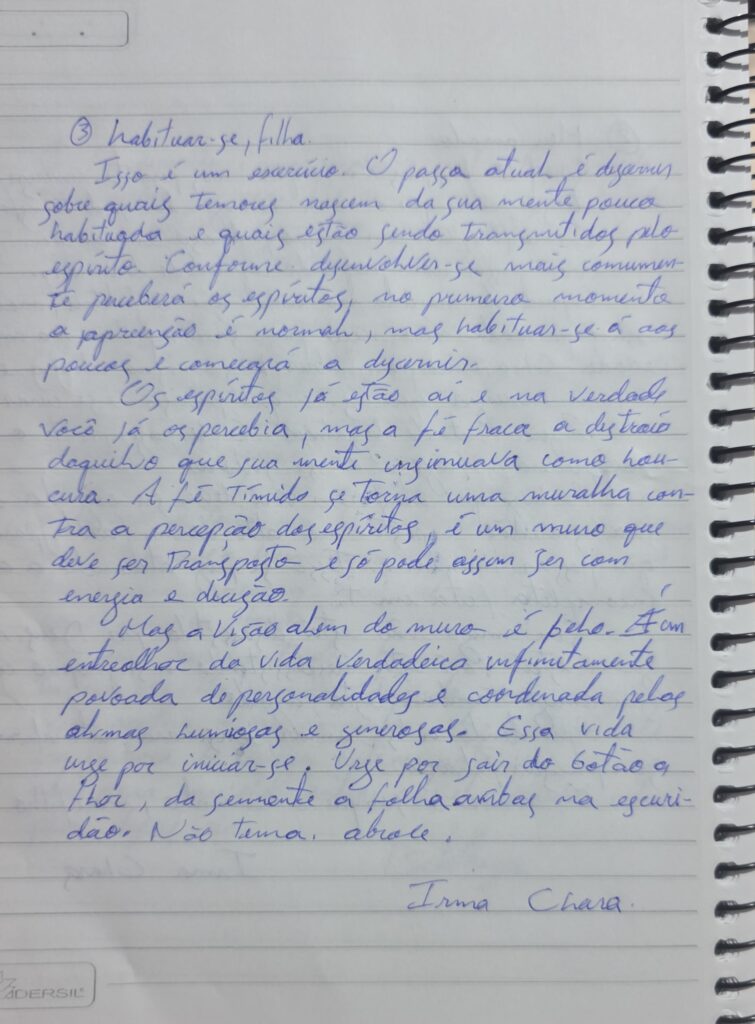 ③ habituar-se, filha.
Isso é um exercício. O passo atual é discernir
sobre quais temores nascem da sua mente pouco
habituada e quais estão sendo transmitidos pelo
espírito. Conforme desenvolver-se mais comumen-
te perceberá os espíritos, no primeiro momento
a apreenção é normal, mas habituar-se á aos
poucos e começará a discernir.
Os espíritos já estão aí e na verdade
você já os percebia, mas a fé fraca a distraio
daquilo que sua mente insinuava como lou-
cura. A fé tímida se torna uma muralha con-
tra a percepção dos espíritos, é um muro que
deve ser transposto e só pode assim ser com
energia e decisão.
Mas a visão além do muro é bela. É um
entreolhar da vida verdadeira infinitamente
povoada de personalidades e coordenada pelas
almas luminosas e generosas. Essa vida
urge por iniciar-se. Urge por sair do botão a
flor, da semente a folha ambas na escuri-
dão. Não tema, abrace.
Irma Clara.
ADERSIL